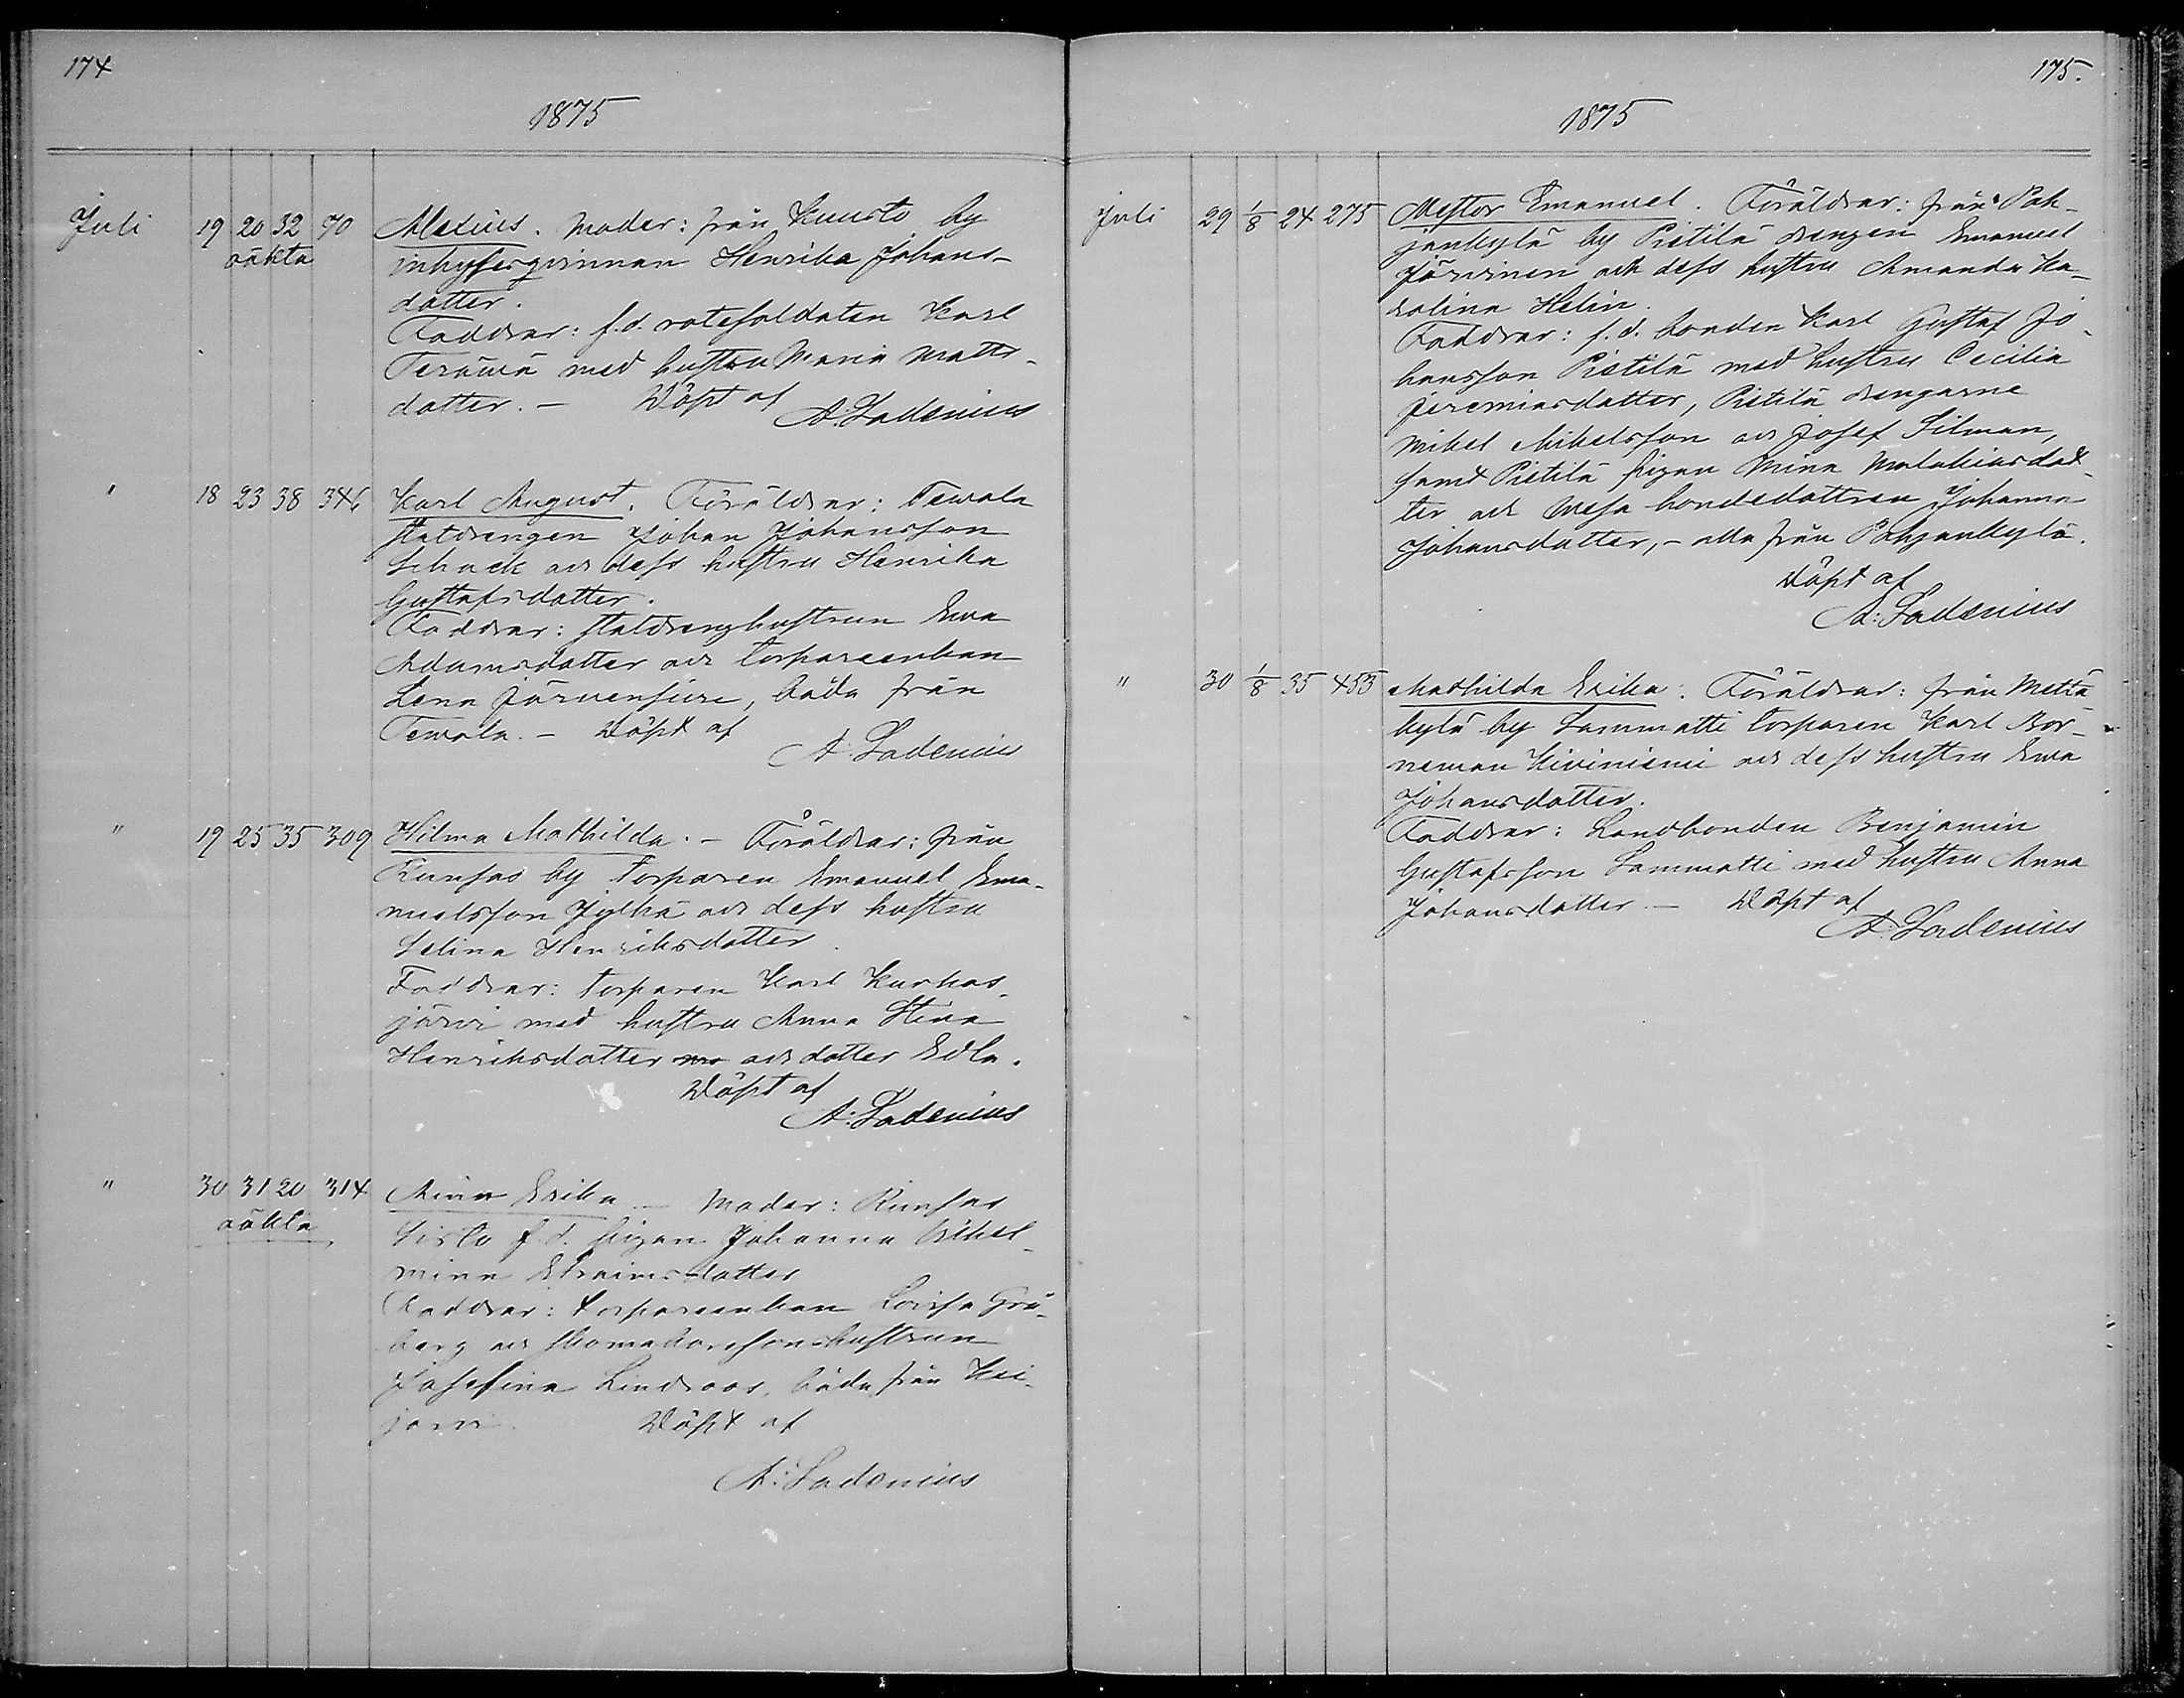 174
1875
Juli 19 20 32 70 Alexius. Moder: från Kuusto by
oäkta inhysesqvinnan Henrika Johans-
dotter.
Faddrar: f.d. rotesoldaten Karl
Terämä med hustru Maria Matts-
dotter. — Döpt af
A. Ladenius
" 18 23 38 346 Karl August. Föräldrar: Tewala
statdrengen Johan Johansson
Schack och dess hustru Henrika
Gustafsdotter.
Faddrar: statdrenghustrun Ewa
Adamsdotter och torpareenkan
Lena Järvensivu, båda från
Tewala. — Döpt af
A. Ladenius
" 19 25 35 309 Hilma Mathilda. — Föräldrar: från
Punsas by torparen Emanuel Ema-
nuelsson Jylhä och dess hustru
Selina Henriksdotter.
Faddrar: torparen Karl Kurkas-
järvi med hustru Anna Stina
Henriksdotter och dotter Edla.
Döpt af
A. Ladenius
" 30 31 20 314 Minna Erika. — Moder: Punsas
oäkta f.d. pigan Johanna Vilhel-
mina Efraimsdotter
Faddrar: torpareenkan Lovisa Grö-
berg och skomakaresonhustrun
Josefina Lindroos, båda från Kii-
jarvi. Döpt af
A. Ladenius
175.
1875
Juli 29 1/8 24 275 Nestor Emanuel. Föräldrar: från Poh-
jankylä by Pietilä drengen Emanuel
Järvinen och dess hustru Amanda Ka-
rolina Helin.
Faddrar: f.d. bonden Karl Gustaf Jo-
hansson Pietilä med hustru Cecilia
Jeremiasdotter, Pietilä drengarne
Mikel Mikelsson och Josef Silman,
samt Pietilä pigan Mina Malakiasdot-
ter och bondedottren Johanna
Johansdotter, — alla från Pohjankylä.
Döpt af
A. Ladenius
" 30 1/8 35 453 Mathilda Erika. Föräldrar: från Mettä-
kylä by Sammatti torparen Karl Bor-
neman Kiviniemi och dess hustru Ewa
Johansdotter.
Faddrar: Landbonden Benjamin
Gustafsson Sammatti med hustru Anna
Johansdotter. — Döpt af
A. Ladenius